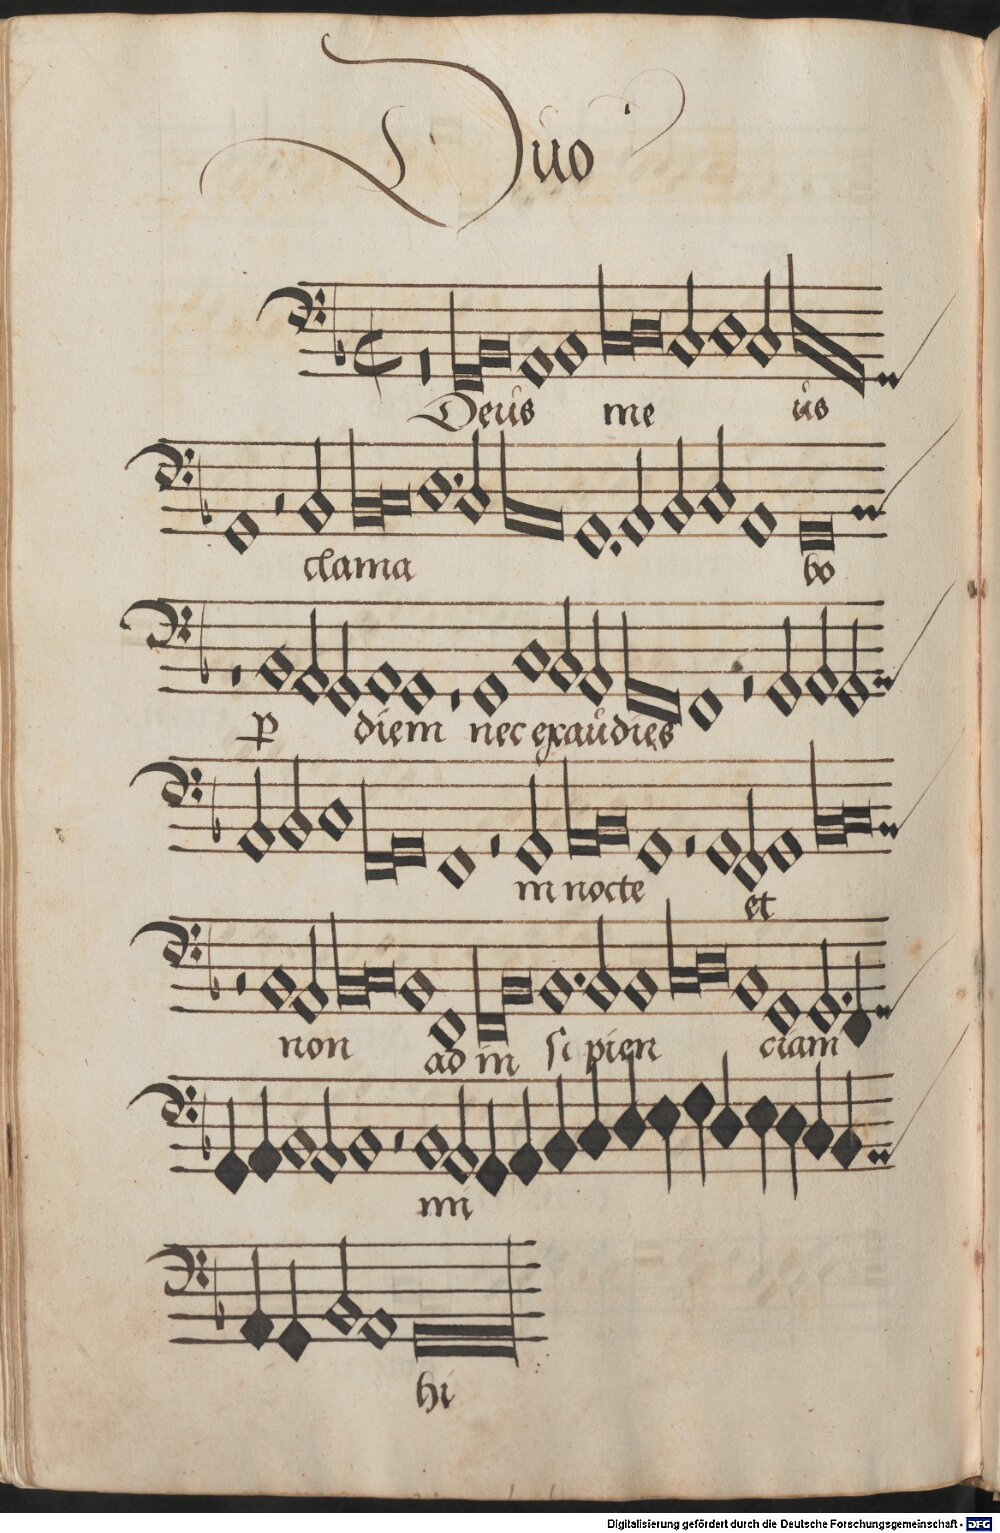 Duo
Deus me us
clama bo
p diem nec exaudies
in nocte et
non ad in si pien ciam
mi
hi
Digitalisierung gefördert durch die Deutsche Forschungsgemeinschaft - DFG